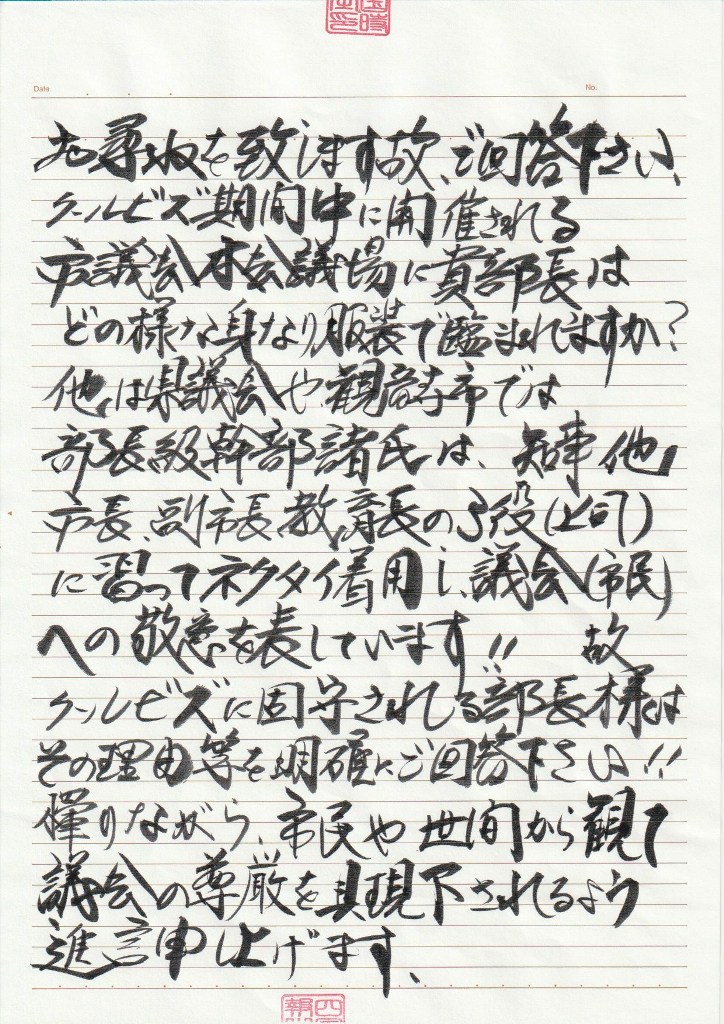 Date
No.
お尋ねを致します故、ご回答下さい、
クールビズ期間中に開催される
市議会本会議場に貴部長は
どの様な身なり服装で臨まれますか?
他は県議会や観音寺市では
部長級幹部諸氏は、知事他
市長、副市長、教育長の3役(上司)
に習ってネクタイ着用し、議会(市民)
への敬意を表しています!! 故
クールビズに固守される部長様は
その理由等を明確にご回答下さい!!
憚りながら、市民や世間から観て
議会の尊厳を具現下されるよう
進言申し上げます、